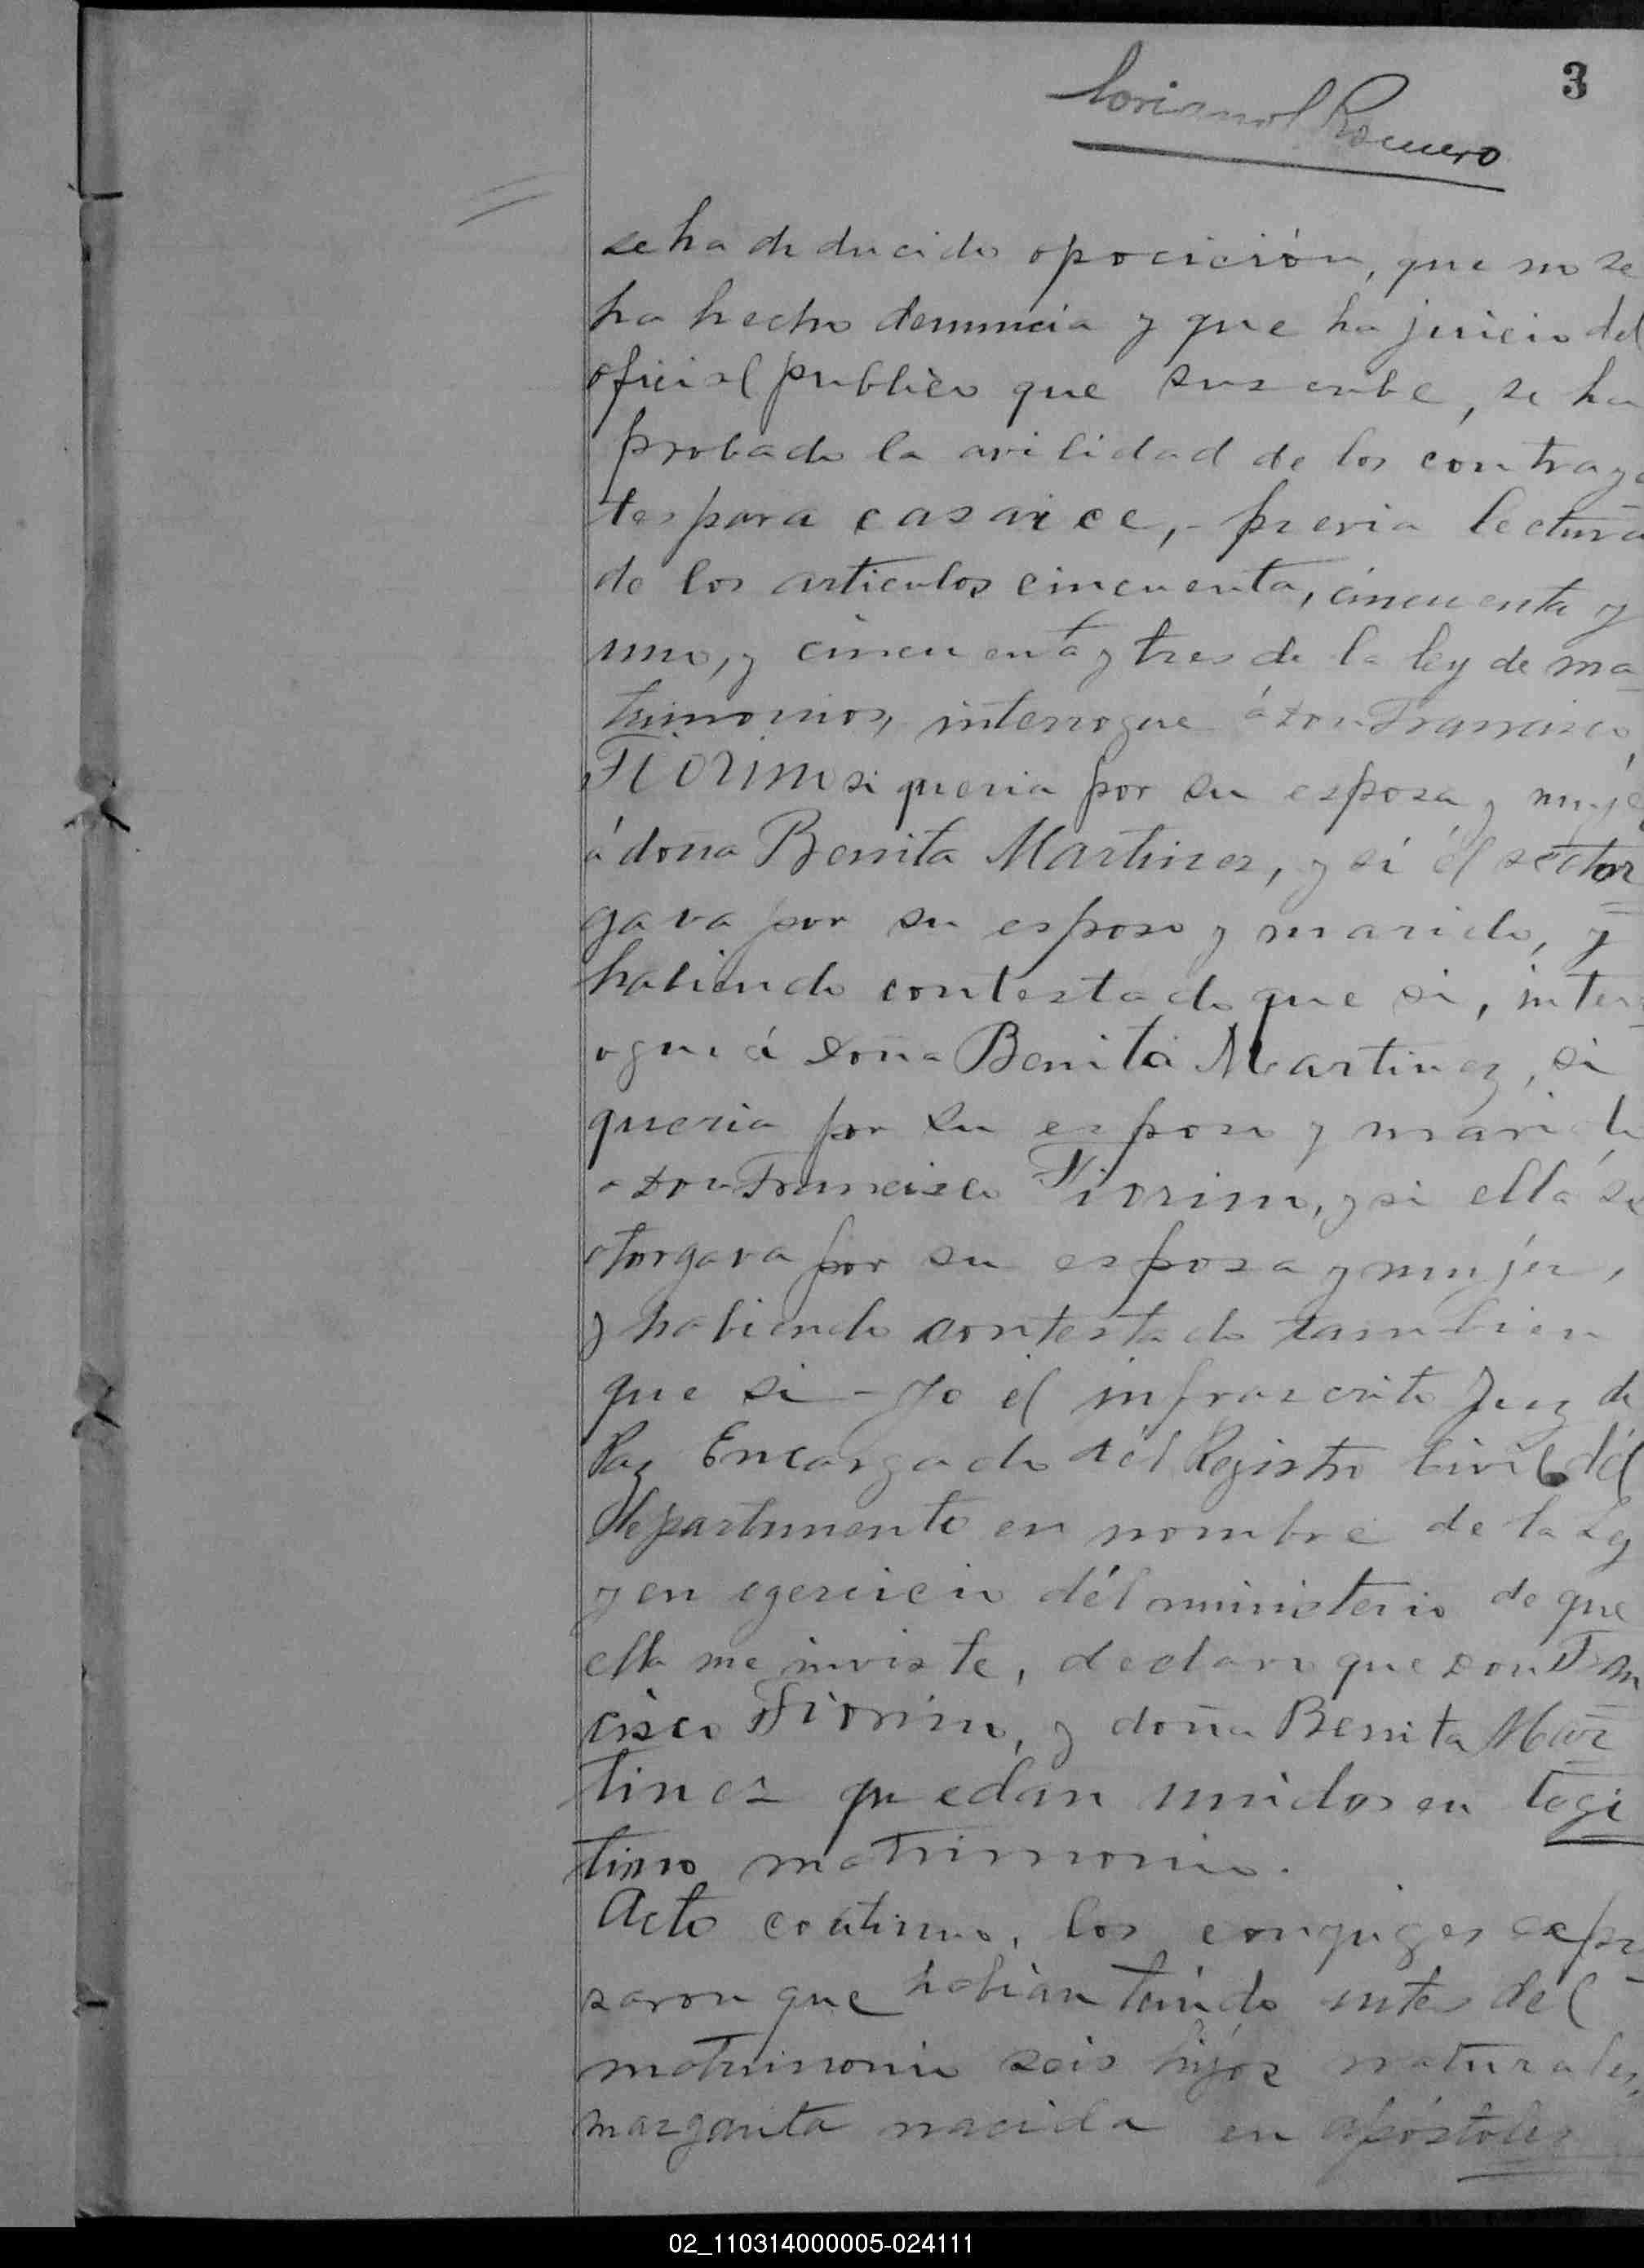 3
Romero
se ha deducido opocición, que no se
ha hecho denuncia y que ha juicio del
oficial publico que suscribe, se ha
probado la avilidad de los contraye
tes para casarce,- previa lectura
de los articulos cincuenta, cincuenta y
uno, y cincuenta y tres de la ley de ma
trimonios, interrogue á Don Francisco
Fiorim si queria por su esposa y muje
á doña Benita Martinez, y si él se otor
gava por su esposo y marido, y
habiendo contestado que si, inter
ogué á Doña Benita Martinez, si
queria por su esposo y marido
a Don Francisco Fiorim, y si ella se
otorgava por su esposa y mujer,
y habiendo contestado tambien
que si - Yo el infrascrito Juez de
Paz Encargado del Registro Civil del
departamento en nombre de la Ley
y en egercicio del ministerio de que
ella me inviste, declaro que Don Fran
cisco Fiorim, y doña Benita Mar
tinez quedan unidos en legi
timo matrimonio.
Acto continuo, los conyuges expre
saron que habian tenido antes del
matrimonio seis hijos naturales,
margarita nacida en apóstoles
02_110314000005-024111